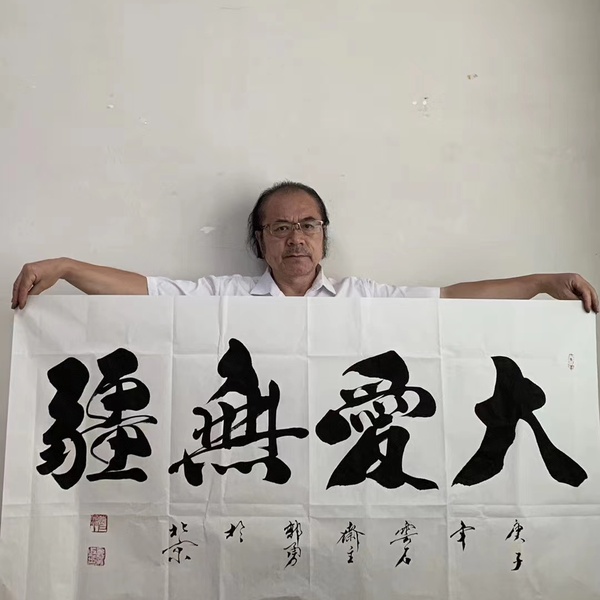 大愛無疆
庚子年雲石齋主郭勇於北京